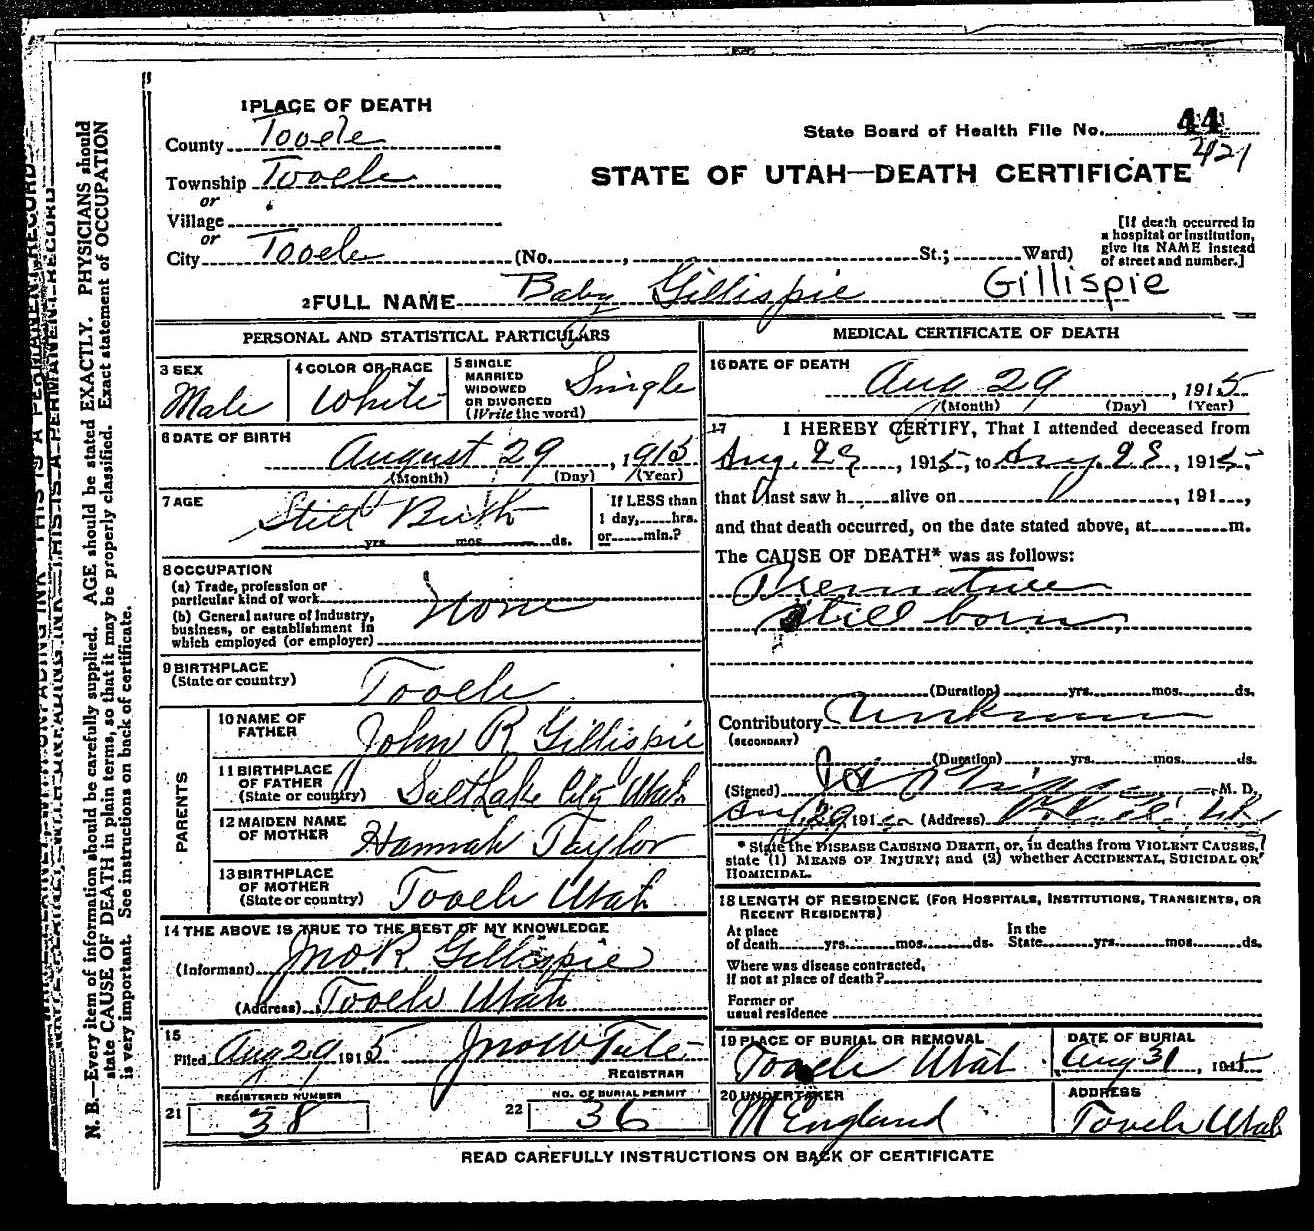 1 PLACE OF DEATH
County Tooele
Township Tooele
or
Village
or
City Tooele (No. , St.; Ward)
State Board of Health File No. 44
421
STATE OF UTAH—DEATH CERTIFICATE
[If death occurred in
a hospital or institution,
give its NAME instead
of street and number.]
2 FULL NAME Baby Gillispie Gillispie
PERSONAL AND STATISTICAL PARTICULARS
3 SEX
Male
4 COLOR OR RACE
White
5 SINGLE
MARRIED
WIDOWED
OR DIVORCED
(Write the word)
Single
6 DATE OF BIRTH
August 29, 1915
(Month) (Day) (Year)
7 AGE
Still Birth
yrs. mos. ds.
If LESS than
1 day, hrs.
or min.?
8 OCCUPATION
(a) Trade, profession or
particular kind of work
(b) General nature of Industry,
business, or establishment in
which employed (or employer)
None
9 BIRTHPLACE
(State or country)
Tooele
PARENTS
10 NAME OF
FATHER
John R Gillispie
11 BIRTHPLACE
OF FATHER
(State or country)
Salt Lake City Utah
12 MAIDEN NAME
OF MOTHER
Hannah Taylor
13 BIRTHPLACE
OF MOTHER
(State or country)
Tooele Utah
14 THE ABOVE IS TRUE TO THE BEST OF MY KNOWLEDGE
(Informant) Jno. R. Gillispie
(Address) Tooele Utah
15
Filed Aug 29 1915 Jno W Tate
REGISTRAR
21 REGISTERED NUMBER
38
22 NO. OF BURIAL PERMIT
36
MEDICAL CERTIFICATE OF DEATH
16 DATE OF DEATH
Aug 29, 1915
(Month) (Day) (Year)
17 I HEREBY CERTIFY, That I attended deceased from
Aug. 29, 1915, to Aug. 29, 1915
that I last saw h alive on , 191 ,
and that death occurred, on the date stated above, at m.
The CAUSE OF DEATH* was as follows:
Premature
still born
(Duration) yrs. mos. ds.
Contributory Unknown
(SECONDARY)
(Duration) yrs. mos. ds.
(Signed) M. D.
Aug 29, 1915 (Address)
* State the DISEASE CAUSING DEATH, or, in deaths from VIOLENT CAUSES,
state (1) MEANS OF INJURY; and (2) whether ACCIDENTAL, SUICIDAL OR
HOMICIDAL.
18 LENGTH OF RESIDENCE (FOR HOSPITALS, INSTITUTIONS, TRANSIENTS, OR
RECENT RESIDENTS)
At place
of death yrs. mos. ds.
In the
State yrs. mos. ds.
Where was disease contracted,
if not at place of death?
Former or
usual residence
19 PLACE OF BURIAL OR REMOVAL
Tooele Utah
DATE OF BURIAL
Aug 31, 1915
20 UNDERTAKER
M England
ADDRESS
Tooele Utah
READ CAREFULLY INSTRUCTIONS ON BACK OF CERTIFICATE
N. B.—Every item of information should be carefully supplied. AGE should be stated EXACTLY. PHYSICIANS should
state CAUSE OF DEATH in plain terms, so that it may be properly classified. Exact statement of OCCUPATION
is very important. See instructions on back of certificate.